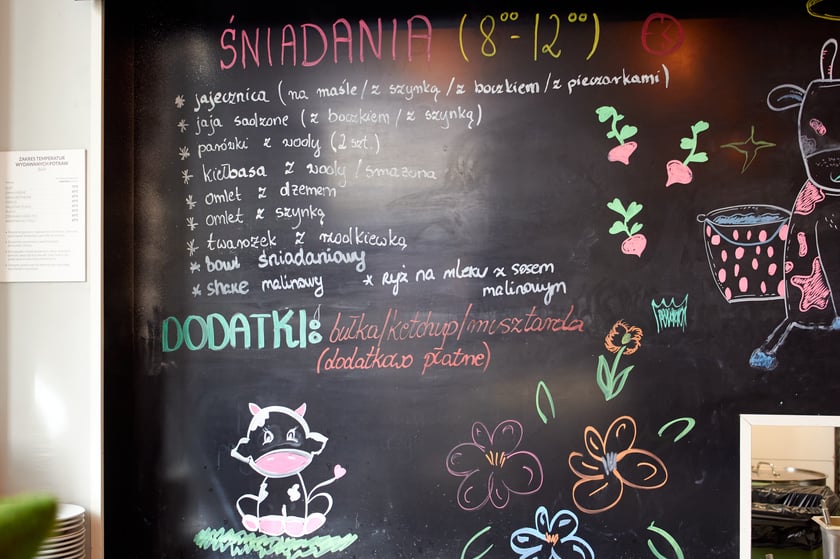 ŚNIADANIA (8⁰⁰-12⁰⁰)
* jajecznica (na maśle/z szynką/z boczkiem/z pieczarkami)
* jaja sadzone (z boczkiem/z szynką)
* parówki z wody (2 szt.)
* kiełbasa z wody/smażona
* omlet z dżemem
* omlet z szynką
* twarożek z rzodkiewką
* bowl śniadaniowy
* shake malinowy * ryż na mleku z sosem
malinowym
DODATKI: bułka/ketchup/musztarda
(dodatkowo płatne)
ZAKRES TEMPERATUR
WYDAWANYCH POTRAW